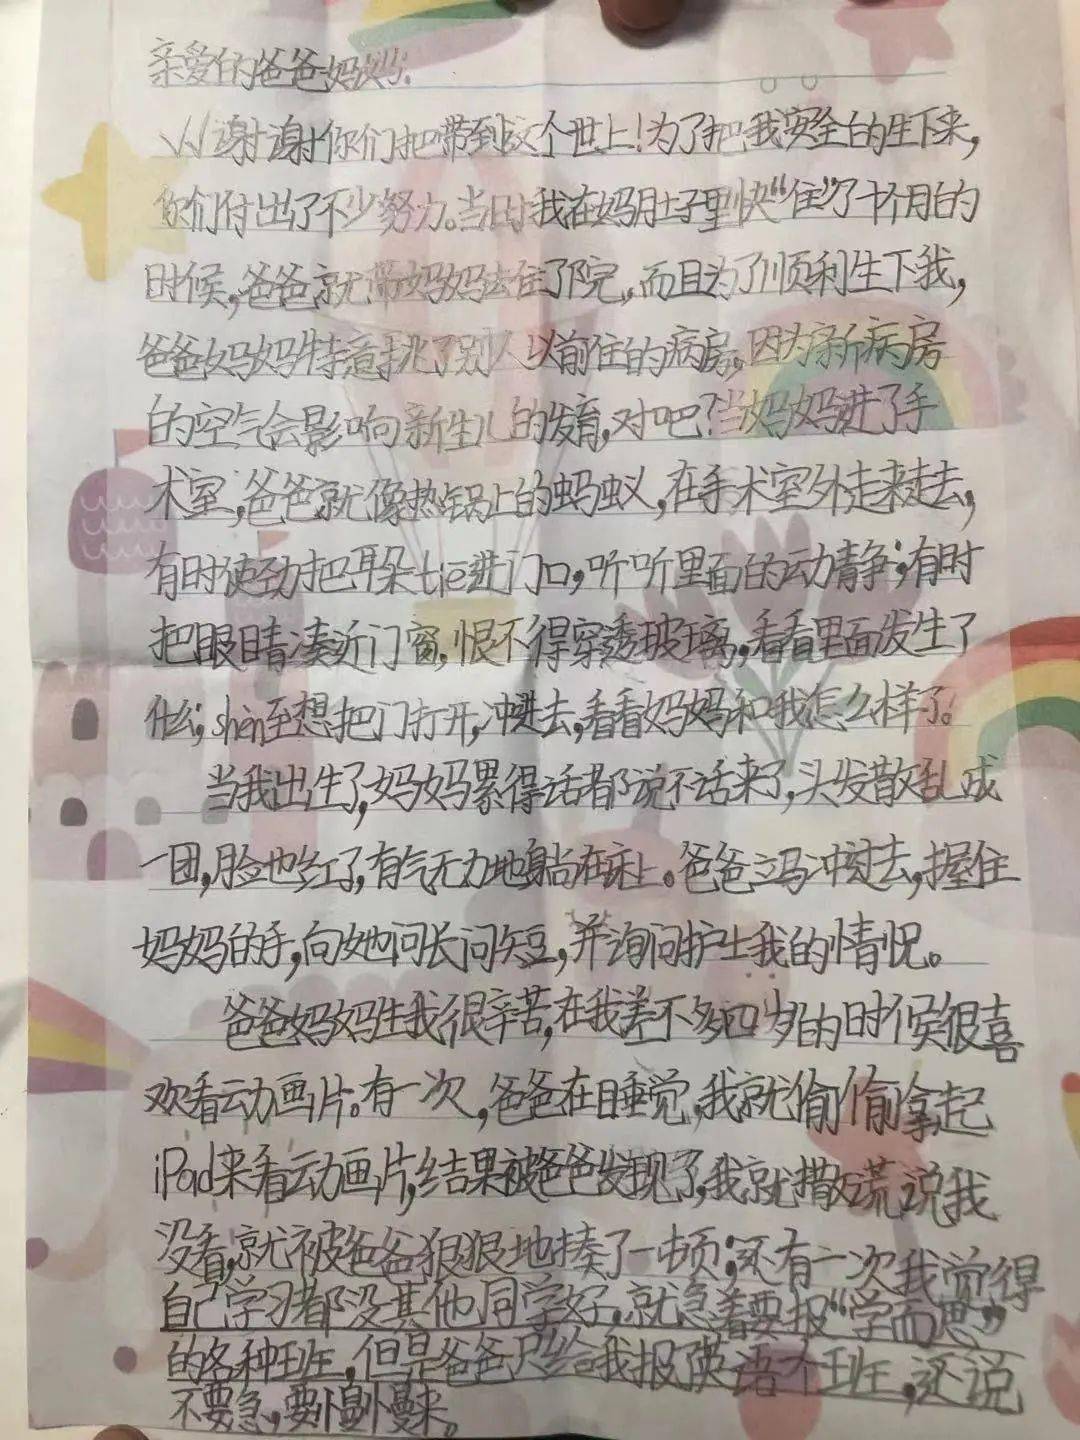 亲爱的爸爸妈妈:
谢谢你们把带到这个世上!为了把我安全的生下来,
你们付出了不少努力。当时我在妈肚子里快“住”了十个月的
时候,爸爸就带妈妈去住了院,而且为了顺利生下我,
爸爸妈妈特意挑了别人以前住的病房,因为新病房
的空气会影响新生儿的发育,对吧?当妈妈进了手
术室,爸爸就像热锅上的蚂蚁,在手术室外走来走去,
有时使劲把耳朵tiē进门口,听听里面的动静;有时
把眼睛凑近门窗,恨不得穿透玻璃,看看里面发生了
什么;shèn至想把门打开,冲进去,看看妈妈和我怎么样了。
当我出生了,妈妈累得话都说不话来了,头发散乱成
一团,脸也红了,有气无力地躺在床上。爸爸立马冲过去,握住
妈妈的手,向她问长问短,并询问护士我的情况。
爸爸妈妈生我很辛苦,在我差不多四岁的时候很喜
欢看动画片。有一次,爸爸在睡觉,我就偷偷拿起
iPad来看动画片,结果被爸爸发现了,我就撒谎说我
没看,就被爸爸狠狠地揍了一顿;还有一次我觉得
自己学习都没其他同学好,就急着要报“学而思”
的各种班,但是爸爸只给我报英语个班,还说
不要急,要慢慢来。